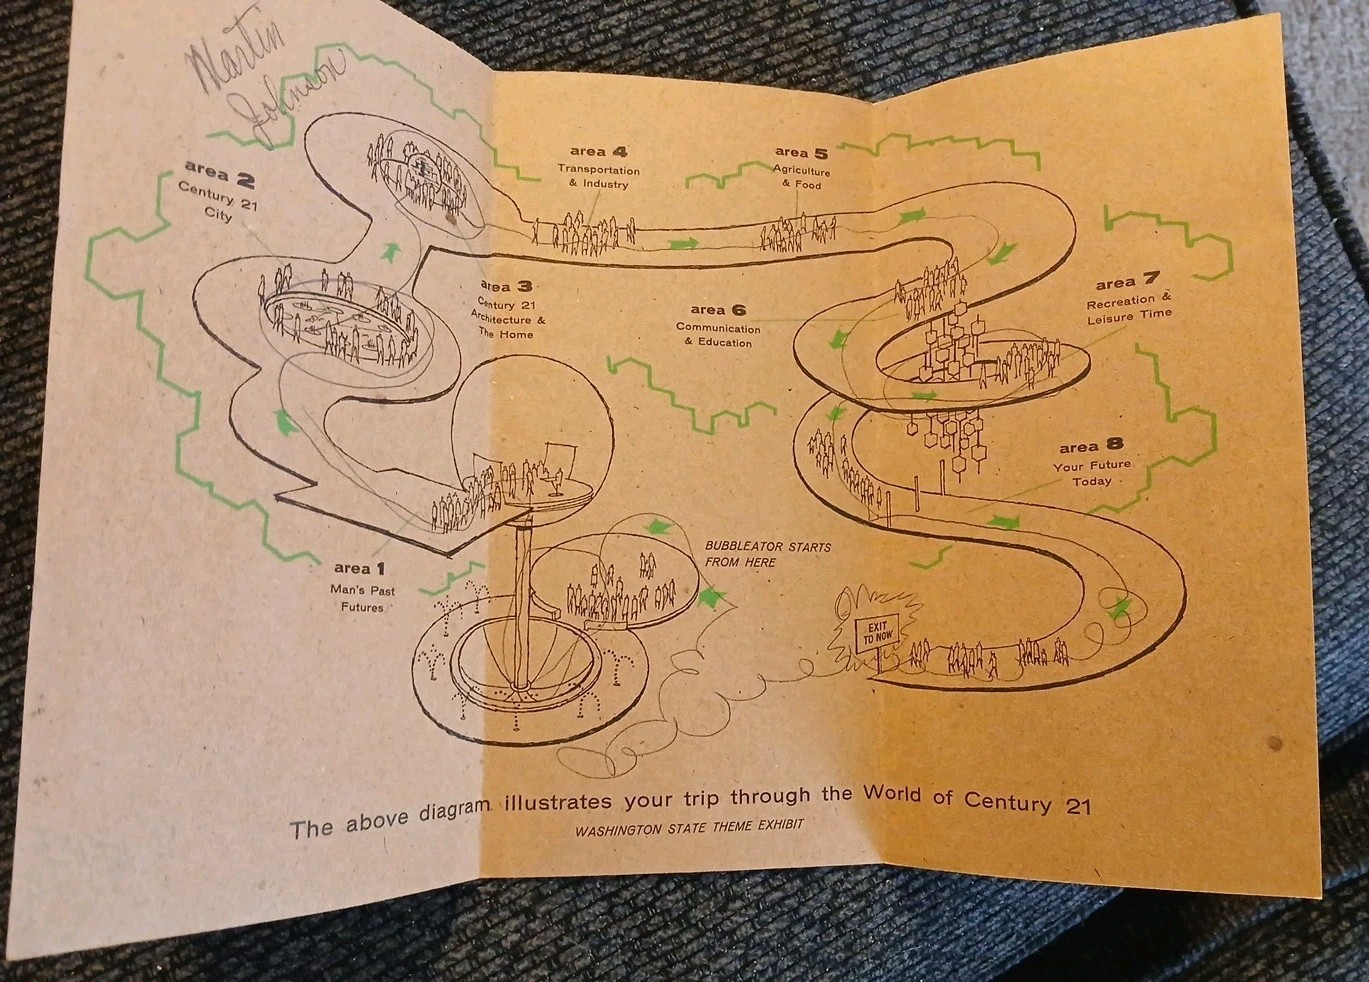 Martin
Johnson
area 2
Century 21
City
area 4
Transportation
& Industry
area 5
Agriculture
& Food
area 3
Century 21
Architecture &
The Home
area 6
Communication
& Education
area 7
Recreation &
Leisure Time
area 8
Your Future
Today
area 1
Man's Past
Futures
BUBBLEATOR STARTS
FROM HERE
EXIT
TO NOW
The above diagram illustrates your trip through the World of Century 21
WASHINGTON STATE THEME EXHIBIT